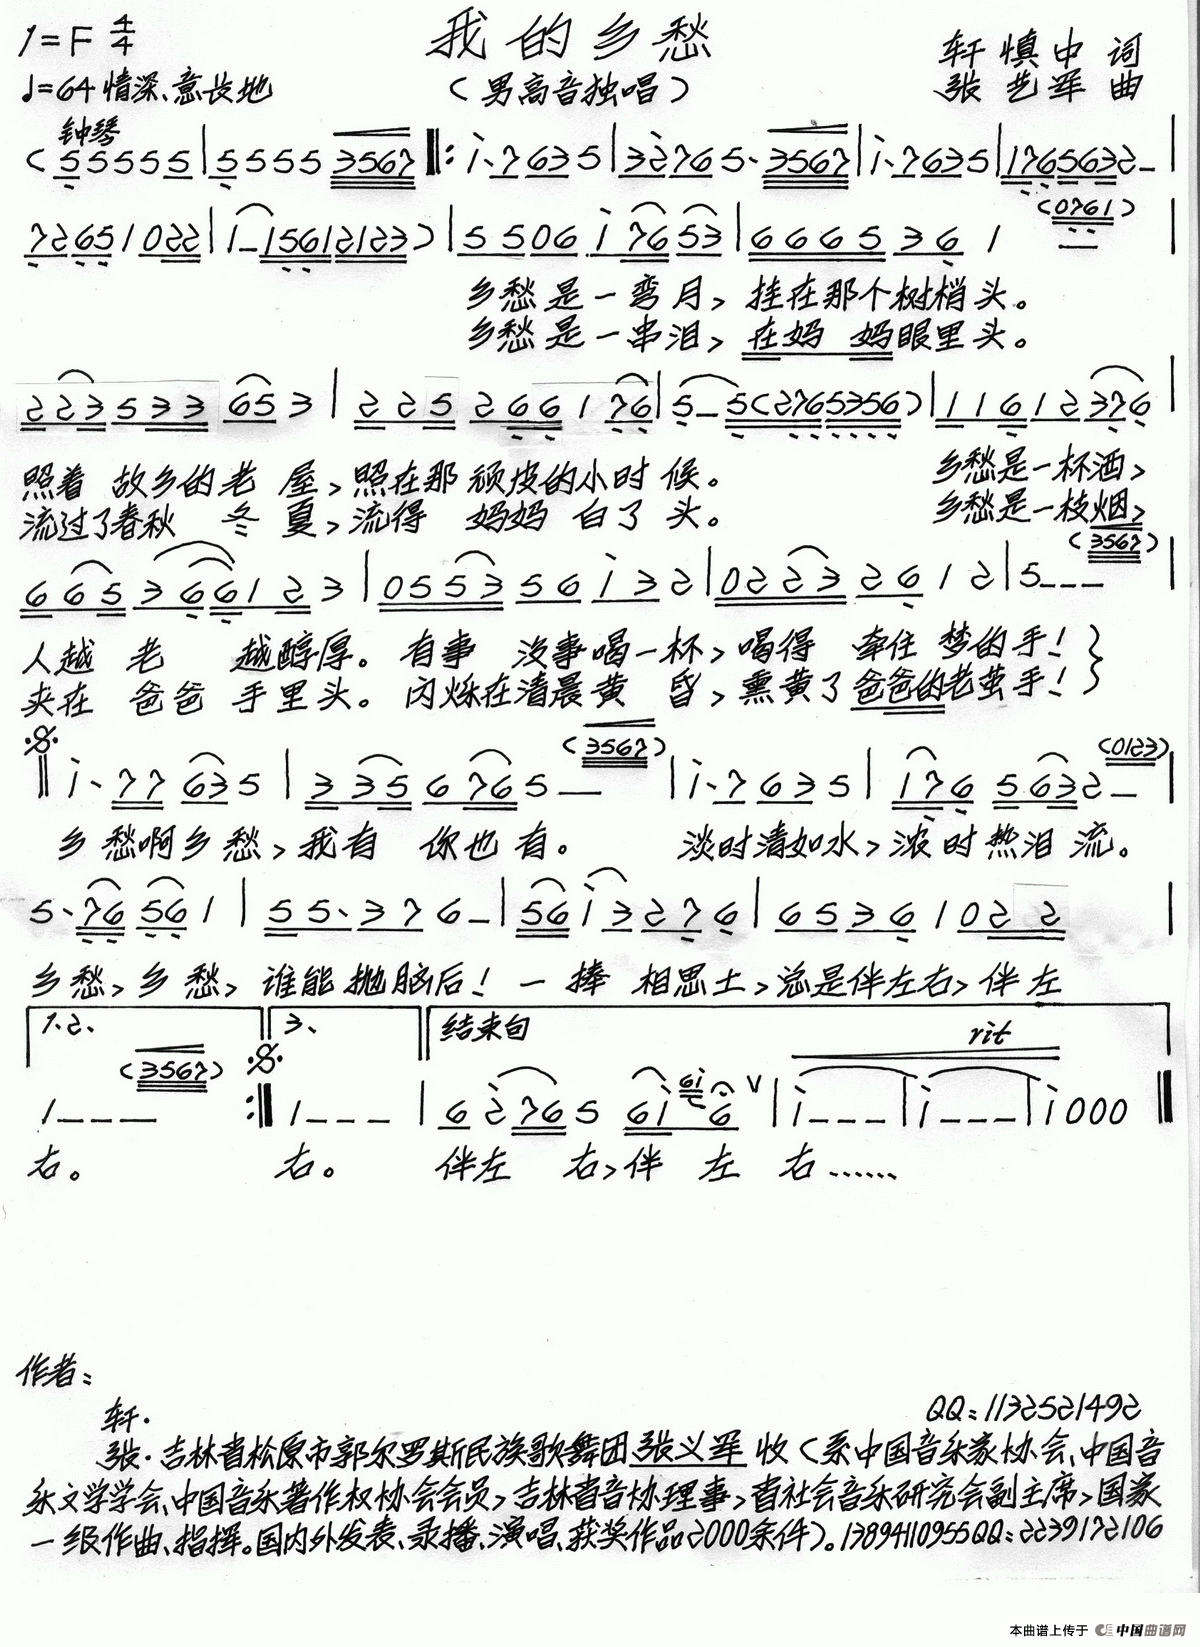 我的乡愁
1=F 4/4
(男高音独唱)
轩慎中 词
♩=64 情深、意长地
张艺军 曲
钟琴
(5 5 5 5 5 | 5 5 5 5 3567 ‖: i· 7 6 3 5 | 3 2 7 6 5· 3567 | i· 7 6 3 5 | 1 7 6 5 6 3 2 – |
(0761)
7 2 6 5 1 0 2 2 | i – 1 5 6 1 2 1 2 3 ) | 5 5 0 6 i 7 6 5 3 | 6 6 6 5 3 6 1 – |
乡愁是一弯月, 挂在那个树梢头。
乡愁是一串泪, 在妈 妈眼里头。
2 2 3 5 3 3 6 5 3 | 2 2 5 2 6 6 1 7 6 | 5 – 5 (2 7 6 5 3 5 6 ) | 1 1 6 1 2 3 7 6 |
照着 故乡的老 屋, 照在那 顽皮的小时 候。 乡愁是一杯酒,
流过了春秋 冬 夏, 流得 妈妈 白了 头。 乡愁是一枝烟,
(3567)
6 6 5 3 6 6 1 2 3 | 0 5 5 3 5 6 i 3 2 | 0 2 2 3 2 6 1 2 | 5 – – – |
人越 老 越醇厚。 有事 没事喝一杯, 喝得 牵住 梦的手!
夹在 爸爸 手里头。 闪烁在清晨黄 昏, 熏黄了爸爸的老茧手!
(3567) (0123)
‖ i· 7 7 6 3 5 | 3 3 5 6 7 6 5 – | i· 7 6 3 5 | 1 7 6 5 6 3 2 – |
乡愁啊乡愁, 我有 你也有。 淡时清如水, 浓时热泪流。
5· 7 6 5 6 1 | 5 5· 3 7 6 – | 5 6 i 3 2 7 6 | 6 5 3 6 1 0 2 2 |
乡愁, 乡愁, 谁能抛脑后! 一捧 相思土, 总是伴左右, 伴左
1、2、 3、 结束句 rit
(3567)
1 – – – :‖ 1 – – – | 6 2 7 6 5 6 i 6i 6 ∨ | i – – – | i – – – | i 0 0 0 ‖
右。 右。 伴左 右, 伴 左 右……
作者:
轩· QQ:1132521492
张·吉林省松原市郭尔罗斯民族歌舞团张义军 收(系中国音乐家协会、中国音
乐文学学会、中国音乐著作权协会会员, 吉林省音协理事, 省社会音乐研究会副主席, 国家
一级作曲、指挥。国内外发表、录播、演唱、获奖作品2000余件)。13894110955QQ:2239172106
本曲谱上传于 中国曲谱网